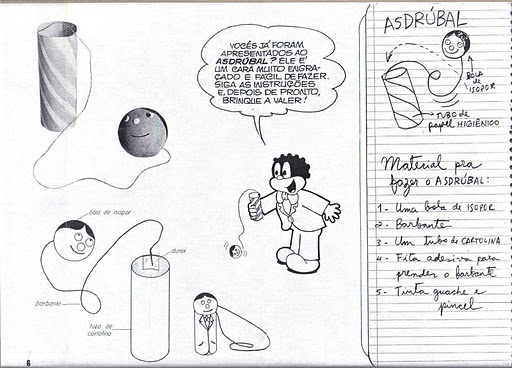 VOCÊS JÁ FORAM
APRESENTADOS AO
ASDRÚBAL? ELE É
UM CARA MUITO ENGRA-
ÇADO E FÁCIL DE FAZER.
SIGA AS INSTRUÇÕES
E, DEPOIS DE PRONTO,
BRINQUE A VALER!
bola de isopor
durex
barbante
tubo de
cartolina
6
ASDRÚBAL
BOLA
de
ISOPOR
TUBO DE
papel HIGIÊNICO
Material pra
fazer o ASDRÚBAL:
1 - Uma bola de ISOPOR
2 - Barbante
3 - Um tubo de CARTOLINA
4 - Fita adesiva para
prender o barbante
5 - Tinta guache e
pincel